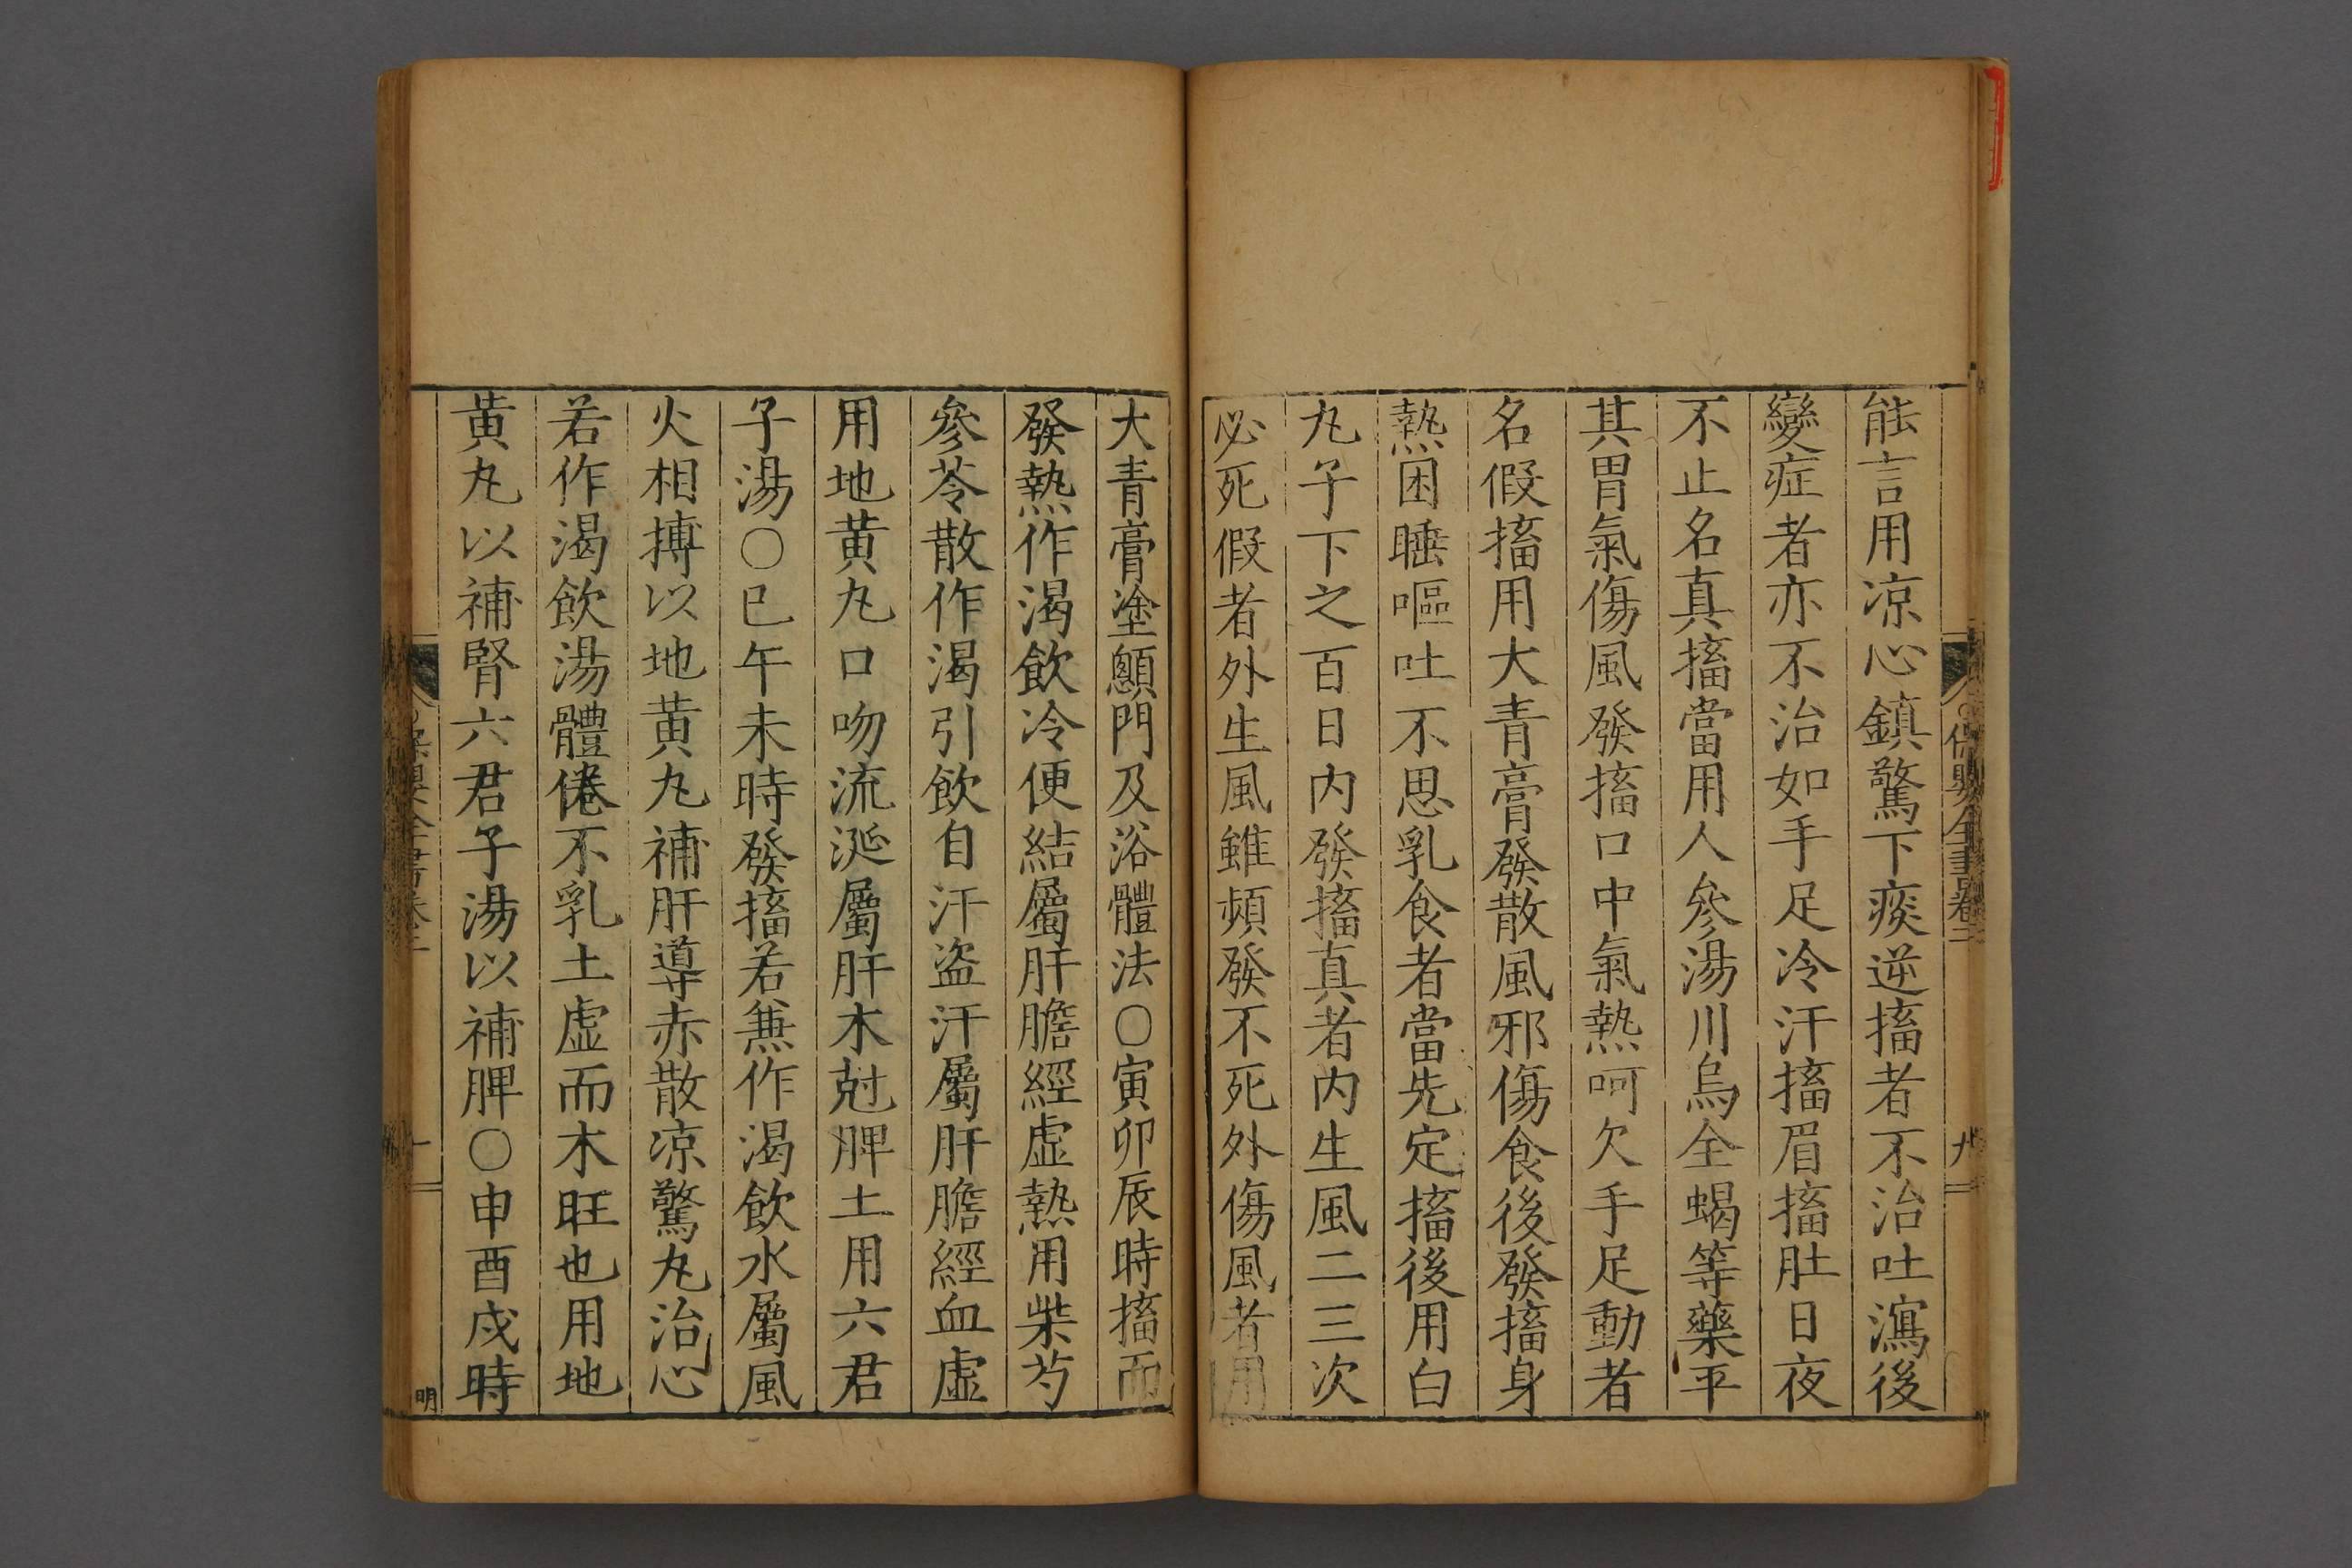 能言用凉心鎮驚下痰逆搐者不治吐瀉後
變症者亦不治如手足冷汗搐眉搐肚日夜
不止名真搐當用人參湯川烏全蝎等藥平
其胃氣傷風發搐口中氣熱呵欠手足動者
名假搐用大青膏發散風邪傷食後發搐身
熱困睡嘔吐不思乳食者當先定搐後用白
丸子下之百日内發搐真者内生風二三次
必死假者外生風雖頻發不死外傷風者用
大青膏塗顖門及浴體法〇寅卯辰時搐而
發熱作渴飲冷便結屬肝膽經虛熱用柴芍
參苓散作渴引飲自汗盗汗屬肝膽經血虛
用地黄丸口吻流涎屬肝木尅脾土用六君
子湯〇巳午未時發搐若兼作渴飲水屬風
火相搏以地黄丸補肝導赤散凉驚丸治心
若作渴飲湯體倦不乳土虛而木旺也用地
黄丸以補腎六君子湯以補脾〇申酉戌時
保嬰全書卷二
九
明